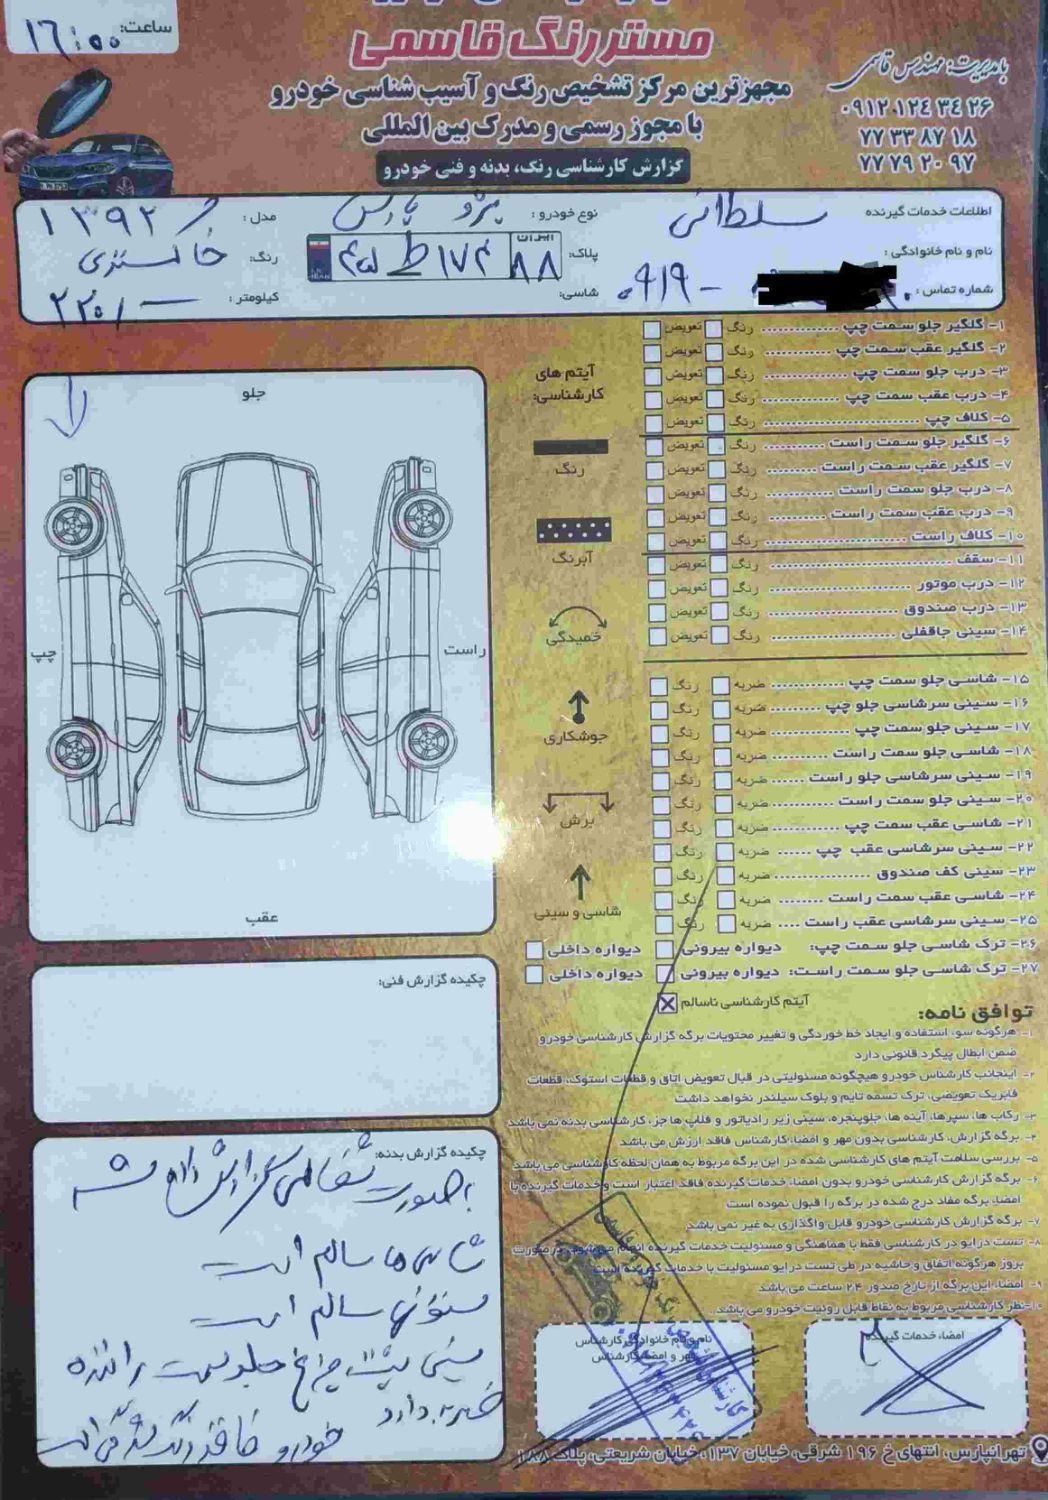 ساعت: ۱۶:۰۰
مستر رنگ قاسمی
با مدیریت: مهندس قاسمی
مجهزترین مرکز تشخیص رنگ و آسیب شناسی خودرو
۰۹۱۲ ۱۲۴ ۳۴ ۲۶
با مجوز رسمی و مدرک بین المللی
۷۷ ۳۳ ۸۷ ۱۸
گزارش کارشناسی رنگ، بدنه و فنی خودرو
۷۷ ۷۹ ۲۰ ۹۷
اطلاعات خدمات گیرنده
نام و نام خانوادگی: سلطانی
شماره تماس: ۰۹۱۹ -
نوع خودرو: پژو پارس
پلاک: ایران ۸۸
شاسی:
مدل: ۱۳۹۲
رنگ: خاکستری
کیلومتر:
۱- گلگیر جلو سمت چپ رنگ تعویض
۲- گلگیر عقب سمت چپ رنگ تعویض
۳- درب جلو سمت چپ رنگ تعویض
۴- درب عقب سمت چپ رنگ تعویض
۵- کلاف چپ رنگ تعویض
۶- گلگیر جلو سمت راست رنگ تعویض
۷- گلگیر عقب سمت راست رنگ تعویض
۸- درب جلو سمت راست رنگ تعویض
۹- درب عقب سمت راست رنگ تعویض
۱۰- کلاف راست رنگ تعویض
۱۱- سقف رنگ تعویض
۱۲- درب موتور رنگ تعویض
۱۳- درب صندوق رنگ تعویض
۱۴- سینی جاقفلی رنگ تعویض
۱۵- شاسی جلو سمت چپ ضربه رنگ
۱۶- سینی سرشاسی جلو چپ ضربه رنگ
۱۷- سینی جلو سمت چپ ضربه رنگ
۱۸- شاسی جلو سمت راست ضربه رنگ
۱۹- سینی سرشاسی جلو راست ضربه رنگ
۲۰- سینی جلو سمت راست ضربه رنگ
۲۱- شاسی عقب سمت چپ ضربه رنگ
۲۲- سینی سرشاسی عقب چپ ضربه رنگ
۲۳- سینی کف صندوق ضربه رنگ
۲۴- شاسی عقب سمت راست ضربه رنگ
۲۵- سینی سرشاسی عقب راست ضربه رنگ
۲۶- ترک شاسی جلو سمت چپ: دیواره بیرونی دیواره داخلی
۲۷- ترک شاسی جلو سمت راست: دیواره بیرونی دیواره داخلی
آیتم کارشناسی ناسالم
آیتم های
کارشناسی:
رنگ
آبرنگ
خمیدگی
جوشکاری
برش
شاسی و سینی
جلو
راست
چپ
عقب
چکیده گزارش فنی:
چکیده گزارش بدنه:
بصورت شفاهی گزارش داده شد
شاسی ها سالم است
ستونها سالم است
سینی پشت چراغ جلو سمت راننده
ضربه دارد
خودرو فاقد رنگ شدگی است
توافق نامه:
۱- هرگونه سوء استفاده و ایجاد خط خوردگی و تغییر محتویات برگه گزارش کارشناسی خودرو
ضمن ابطال پیگرد قانونی دارد
۲- اینجانب کارشناس خودرو هیچگونه مسئولیتی در قبال تعویض اتاق و قطعات استوک، قطعات
فابریک تعویضی، ترک تسمه تایم و بلوک سیلندر نخواهد داشت
۳- رکاب ها، سپرها، آینه ها، جلوپنجره، سینی زیر رادیاتور و قلاب ها جزء کارشناسی بدنه نمی باشد
۴- برگه گزارش، کارشناسی بدون مهر و امضاء کارشناس فاقد ارزش می باشد
۵- بررسی سلامت آیتم های کارشناسی شده در این برگه مربوط به همان لحظه کارشناسی می باشد
۶- برگه گزارش کارشناسی خودرو بدون امضاء خدمات گیرنده فاقد اعتبار است و خدمات گیرنده با
امضاء برگه مفاد درج شده در برگه را قبول نموده است
۷- برگه گزارش کارشناسی خودرو قابل واگذاری به غیر نمی باشد
۸- تست درایو در کارشناسی فقط با هماهنگی و مسئولیت خدمات گیرنده انجام می شود، در صورت
بروز هرگونه اتفاق و حاشیه در طی تست درایو مسئولیت با خدمات گیرنده است
۹- امضاء این برگه از تاریخ صدور ۲۴ ساعت می باشد
۱۰- نظر کارشناسی مربوط به نقاط قابل رویت خودرو می باشد.
امضاء خدمات گیرنده
نام و نام خانوادگی کارشناس
مهر و امضاء کارشناس
تهرانپارس، انتهای خ ۱۹۶ شرقی، خیابان ۱۳۷، خیابان شریعتی، پلاک ۱۸۸